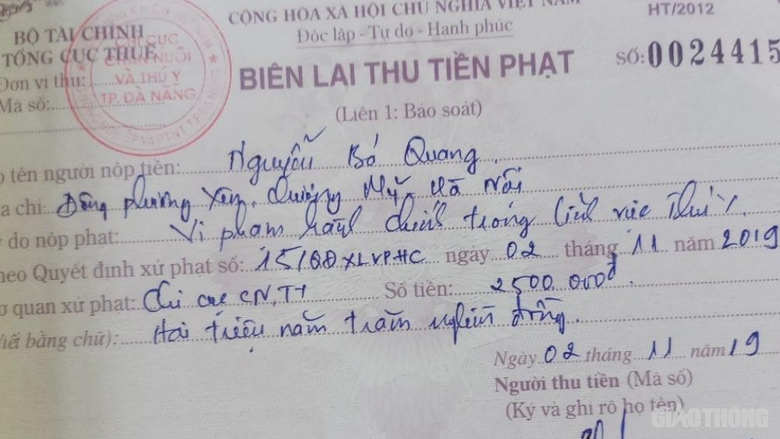 CỘNG HÒA XÃ HỘI CHỦ NGHĨA VIỆT NAM
HT/2012
BỘ TÀI CHÍNH
Độc lập - Tự do - Hạnh phúc
TỔNG CỤC THUẾ
Đơn vị thu:
Mã số:
CHI CỤC
CHĂN NUÔI
VÀ THÚ Y
TP. ĐÀ NẴNG
BIÊN LAI THU TIỀN PHẠT
SỐ: 0024415
(Liên 1: Báo soát)
tên người nộp tiền: Nguyễn Bá Quang
chỉ: Đông phương Yên, Chương Mỹ, Hà Nội
do nộp phạt: Vi phạm hành chính trong lĩnh vực Thú y
heo Quyết định xử phạt số: XLVPHC ngày 02 tháng 11 năm 2019
quan xử phạt: Chi cục CN, TY Số tiền: 2500.000đ
iết bằng chữ): Hai triệu năm trăm nghìn đồng.
Ngày 02 tháng 11 năm 19
Người thu tiền (Mã số)
(Ký và ghi rõ họ tên)
GIAO THÔNG